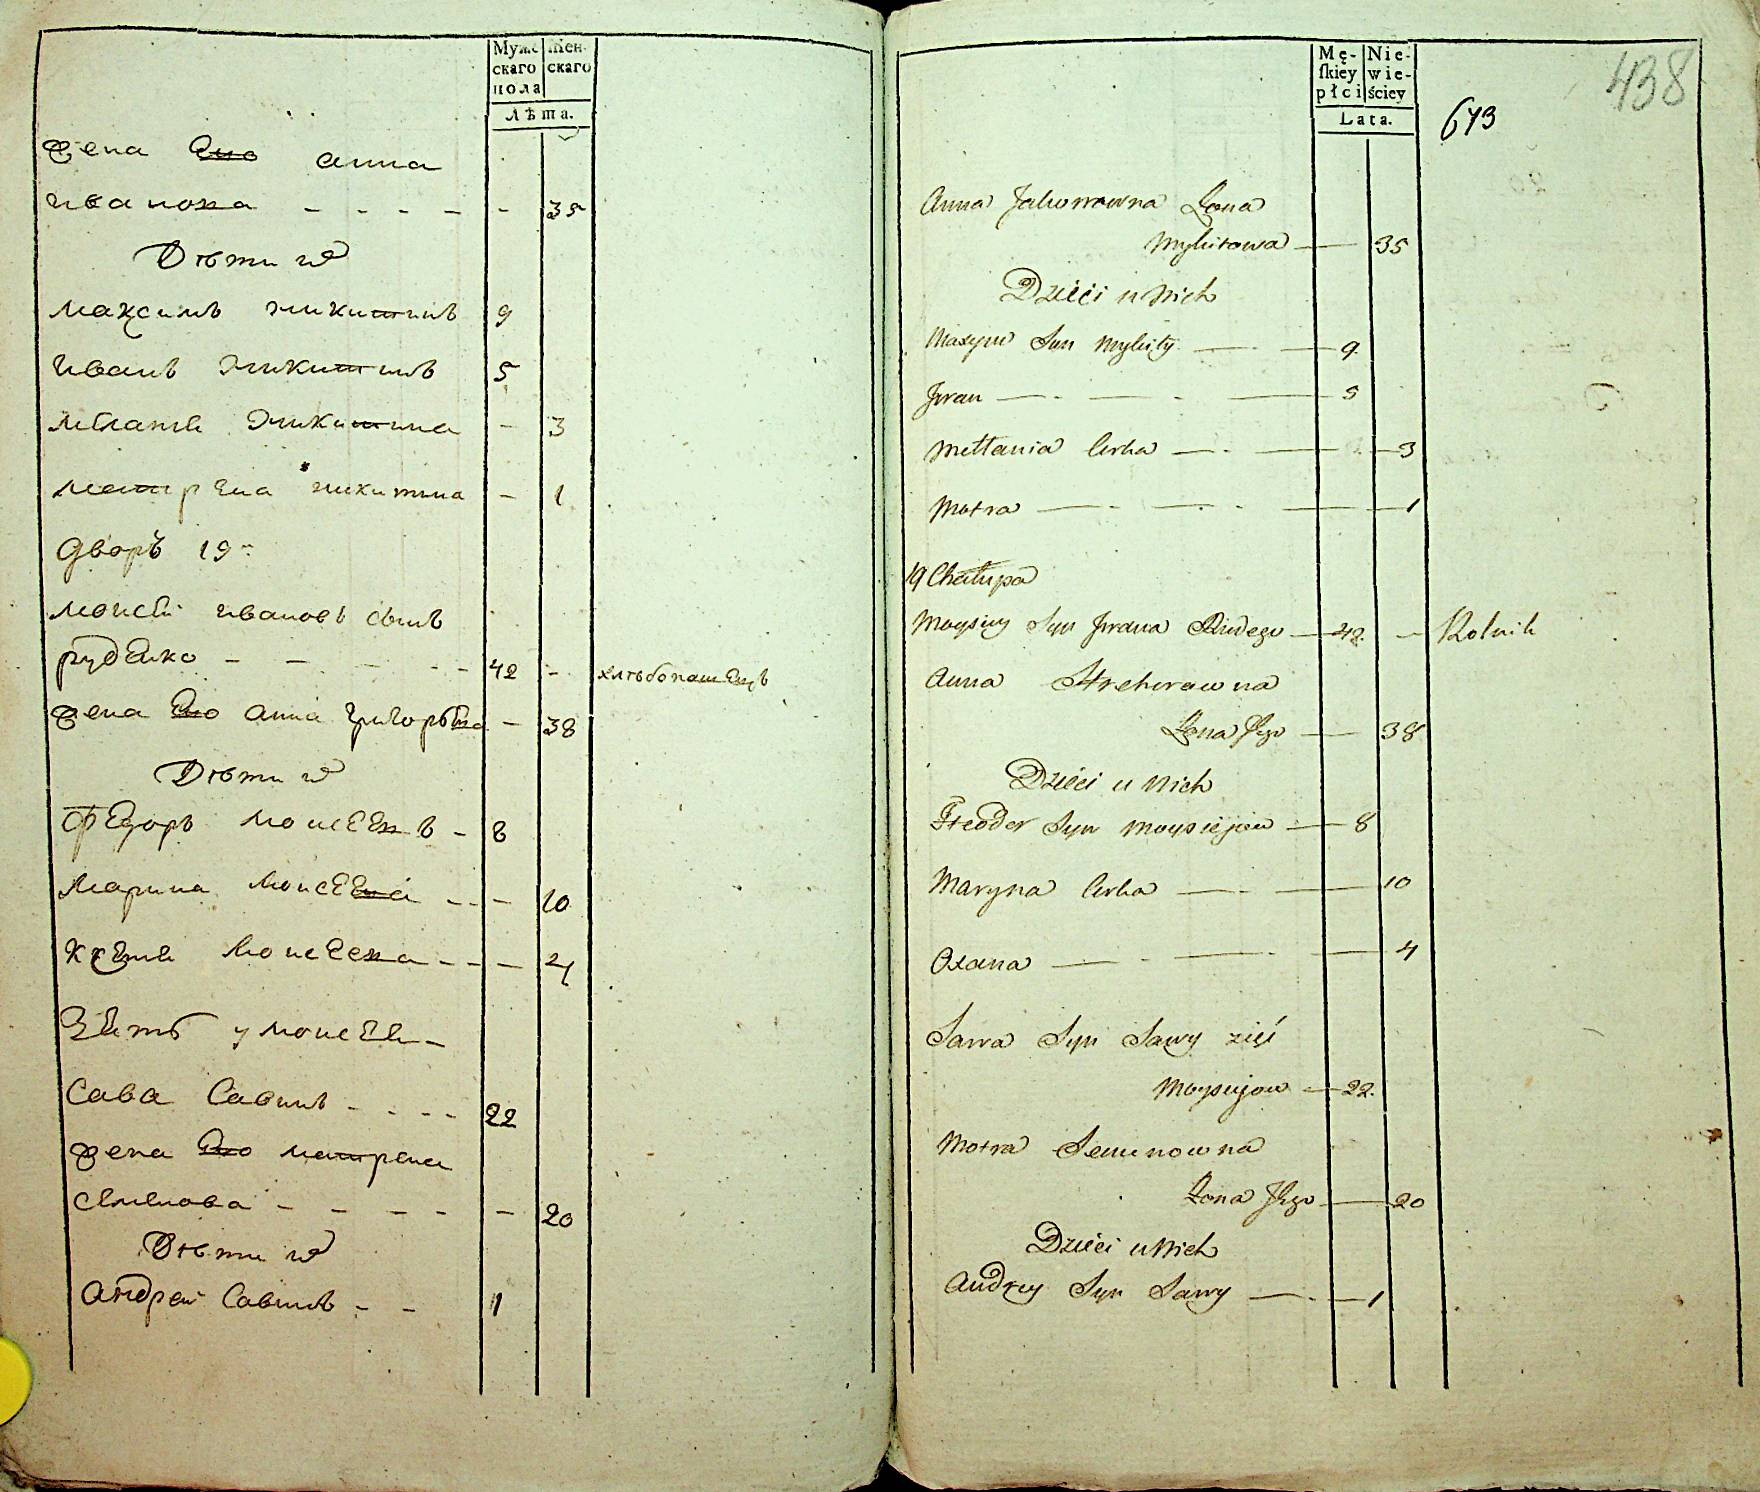 Мужс Жен-
скаго скаго
пола
Лѣта.
жена Его анна
ивановa - - - - - 35
Дѣти ихъ
максимъ никитинъ 9
иванъ никитинъ 5
меланія никитина - 3
матрена никитина - 1
дворъ 19й
моисѣй ивановъ сынъ
руденко - - - - - 42 - хлѣбопашецъ
жена Его анна григорьева - 38
Дѣти ихъ
федоръ моисеевъ - 8
марина моисеева - - - 10
ксенія моисеева - - - 4
Зять у моисея -
Сава Савинъ - - - - 22
жена Его матрена
семенова - - - - - 20
Дѣти ихъ
андрей Савинъ - - 1
438
Mę- Nie-
skiey wie-
płci ściey
Lata.
673
Anna Żona
Mykitowa — 35
Dzieci u Nich
Maxym Syn Mykity — 9
Jwan — 5
Mełania Corka — 3
Motra — 1
19 Chałupa
Moysiey Syn Jwana Rudego — 42 - Rolnik
Anna
Żona Jego — 38
Dzieci u Nich
Fteodor Syn Moysiejow — 8
Maryna Corka — 10
Oxana — 4
Sawa Syn Sawy zięć
Moysiejow — 22.
Motra Semenowna
Żona Jego — 20
Dzieci u Nich
Andrzey Syn Sawy — 1